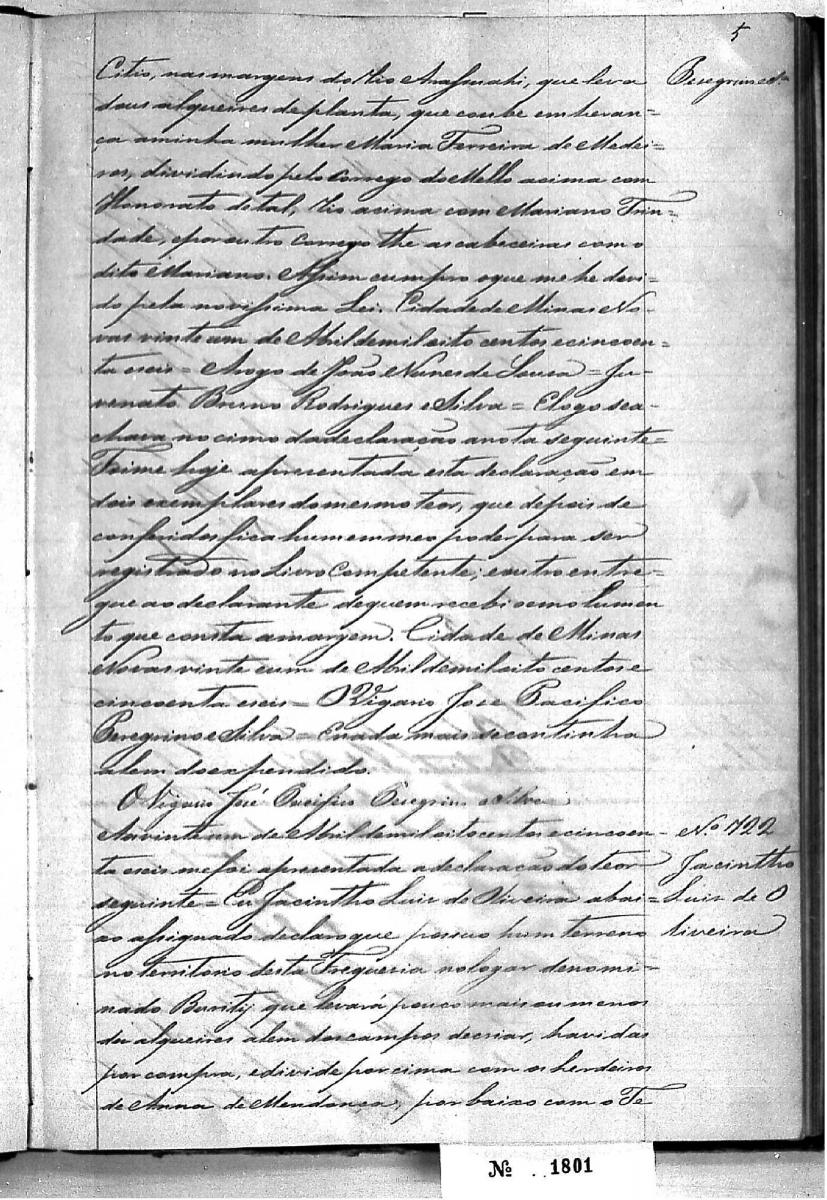 5
Citio, nas margens do Rio Arassuahi, que leva
dous alqueires de planta, que coube em heran=
ça a minha mulher Maria Ferreira de Medei=
ros, dividindo pelo Corrego do Mello acima com
Honorato de tal, Rio acima com Mariano Trin=
dade, e por outro Corrego the as cabeceiras com o
dito Mariano. Assim cumpro o que me he devi=
do pela novissima Lei. Cidade de Minas No=
vas vinte um de Abril de mil oito centos e cincoen=
ta e seis = Arogo de João Nunes de Souza = Ju=
venato Bruno Rodrigues e Silva = E logo se a=
chava no cimo da declaração a nota seguinte =
Foi me hoje apresentada esta declaração em
dois exemplares do mesmo teor, que depois de
conferidos fica hum em meo poder para ser
registrado no Livro Competente; e outro entre=
gue ao declarante de quem recebi o emolumen
to que consta a margem. Cidade de Minas
Novas vinte e um de Abril de mil oito centos e
cincoenta e seis = O Vigario José Pacifico
Peregrino e Silva = E nada mais se continha
alem do expendido.
O Vigario José Pacifico Peregrino e Silva
Aos vinte um de Abril de mil oito centos e cincoen=
ta e seis me foi apresentada a declaração do teor
seguinte = Eu Jacintho Luis de Oliveira abai=
xo assignado declaro que possuo hum terreno
no territorio desta Freguesia no logar denomi=
nado Burity que levará pouco mais ou menos
alqueires alem dos campos de criar, havidas
por compra, e divide por cima com os herdeiros
de Anna de Mendonça, por baixo com o Te
Nº 722
Jacintho
Luis de O
liveira
Nº 1801